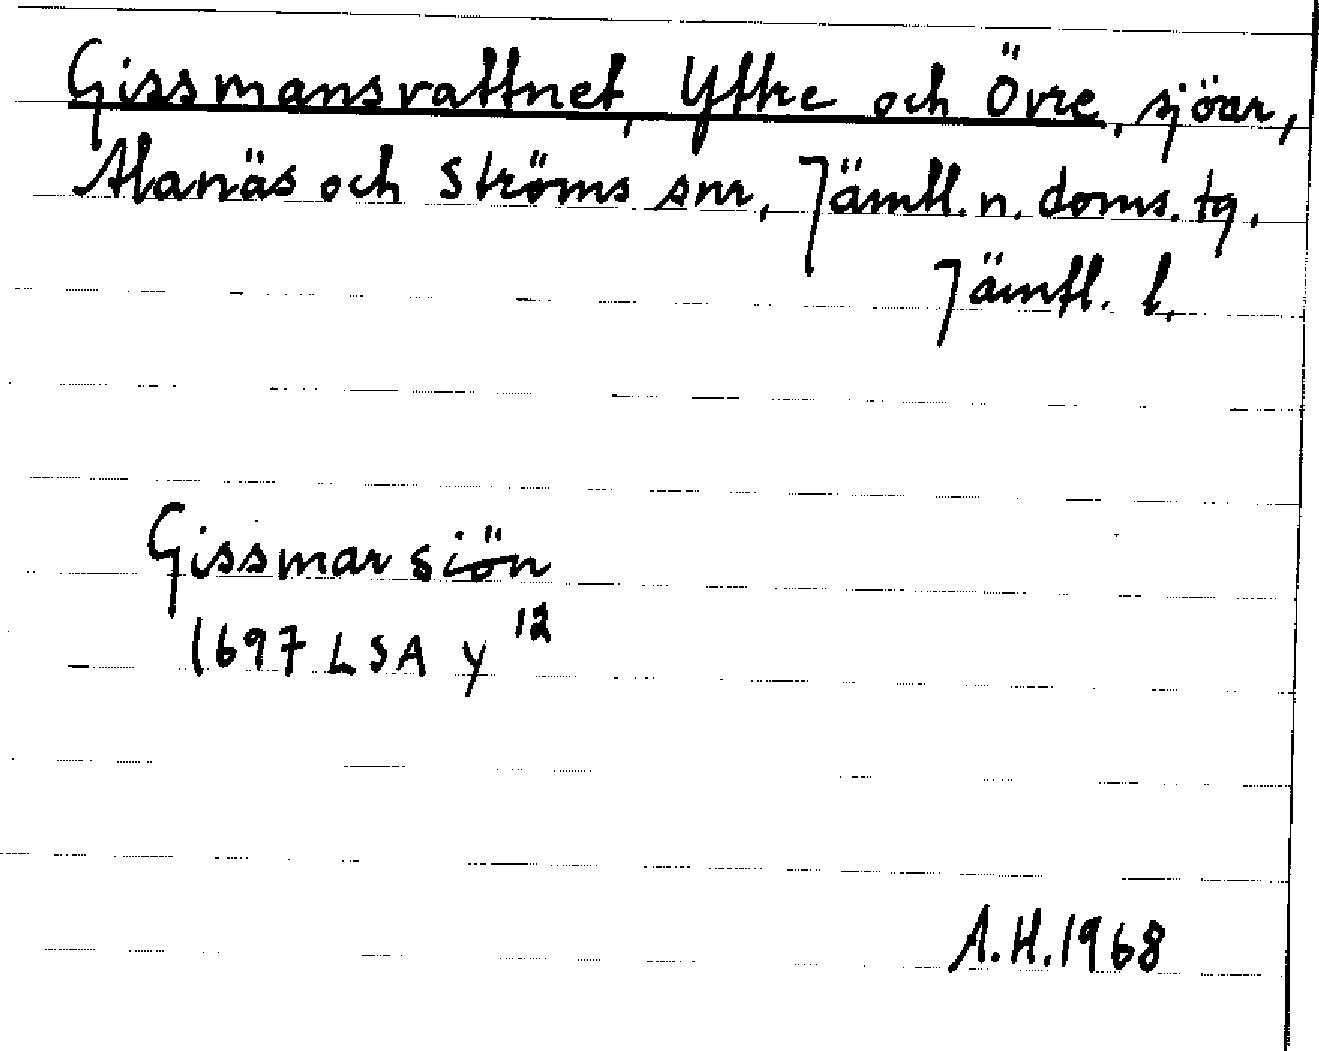 Gissmansvattnet, Yttre och Övre, sjöar,
Alanäs och Ströms snr, Jämtl. n. doms. tg,
Jämtl. l.
Gissmar siön
1697 LSA Y 12
A.H. 1968